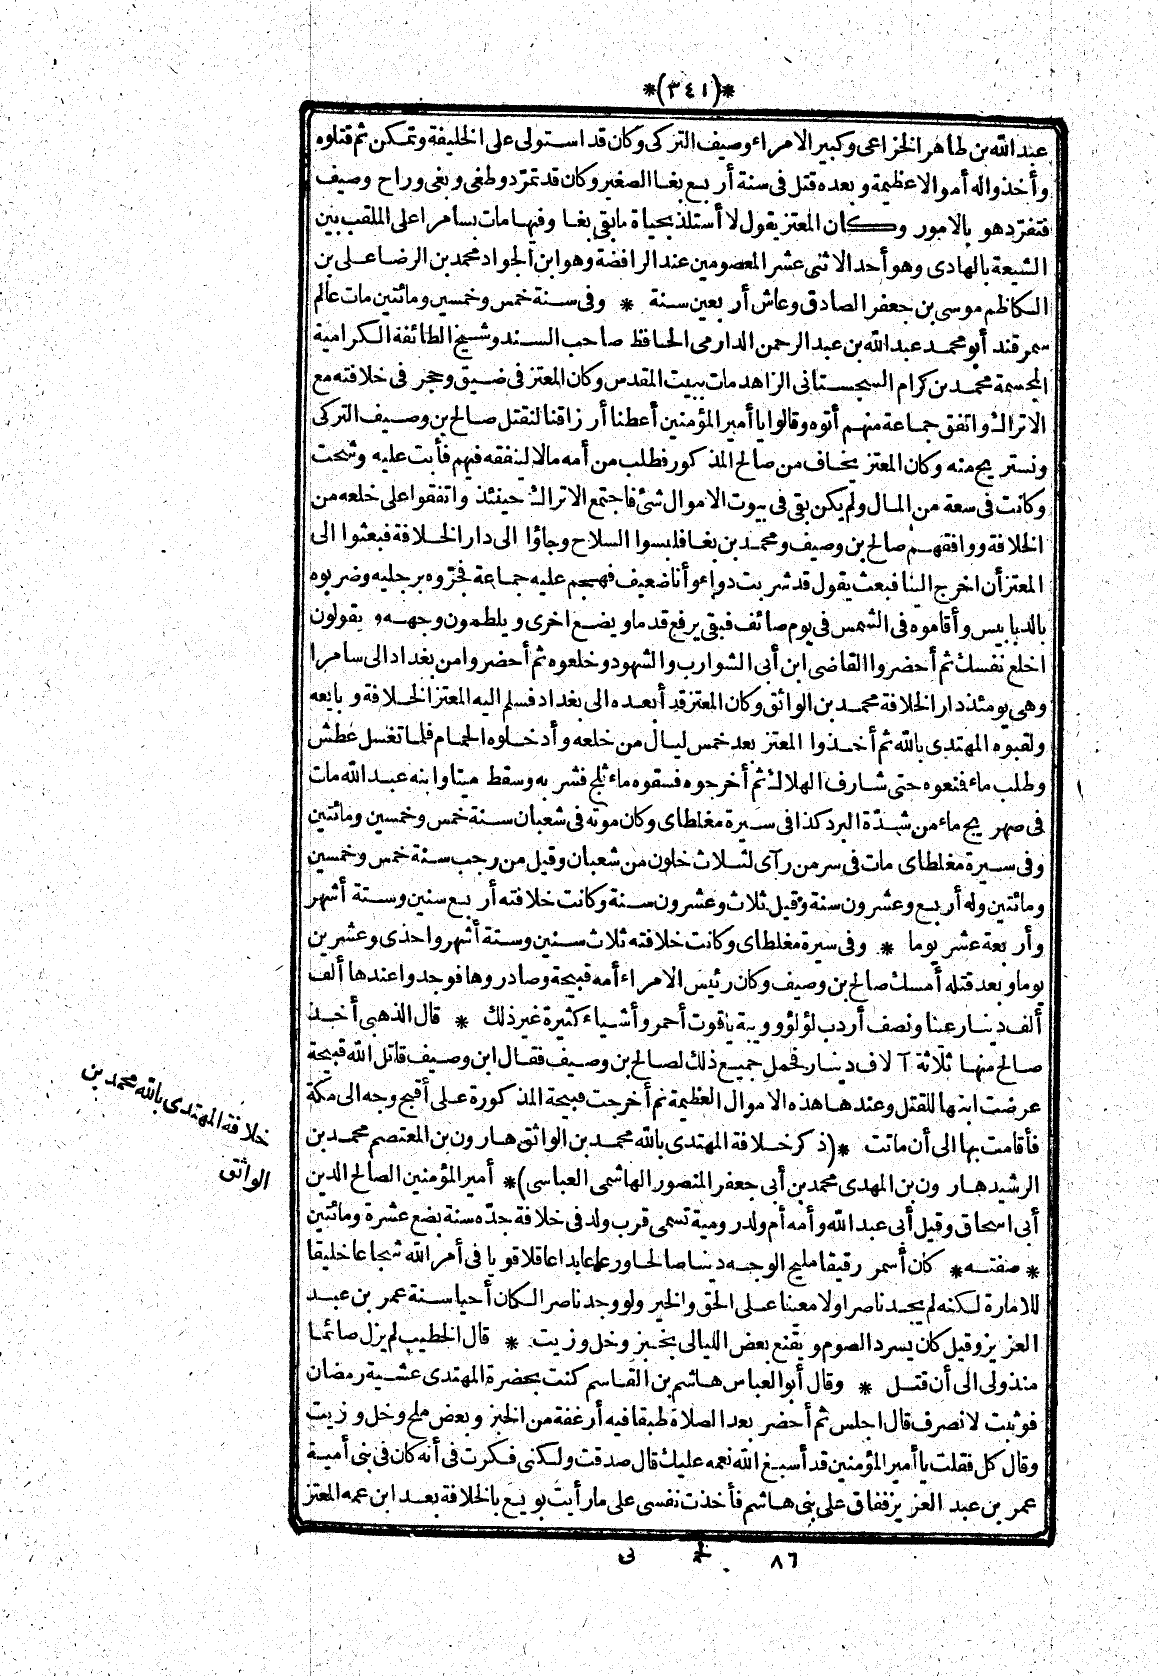 *(٣٤١)*
عبد الله بن طاهر الخزاعى وكبير الامراء وصيف التركى وكان قد استولى على الخليفة وتمكن ثم قتلوه
وأخذوا له أموالا عظيمة وبعده قتل فى سنة أربع بغا الصغير وكان قد تمرّد وطغى وبغى وراح وصيف
فتفرّد هو بالامور وكان المعتز يقول لا أستلذ بحياة ما بقى بغا وفيها مات بسامرا على الملقب بين
الشيعة بالهادى وهو أحد الاثنى عشر المعصومين عند الرافضة وهو ابن الجواد محمد بن الرضا على بن
الكاظم موسى بن جعفر الصادق وعاش أربعين سنة * وفى سنة خمس وخمسين ومائتين مات عالم
سمرقند أبو محمد عبد الله بن عبد الرحمن الدارمى الحافظ صاحب السند وشيخ الطائفة الكرامية
المجسمة محمد بن كرام السجستانى الزاهد مات ببيت المقدس وكان المعتز فى ضيق وحجر فى خلافته مع
الاتراك واتفق جماعة منهم أتوه وقالوا يا أمير المؤمنين أعطنا أرزاقنا لنقتل صالح بن وصيف التركى
ونستريح منه وكان المعتز يخاف من صالح المذكور فطلب من أمه مالا لينفقه فيهم فأبت عليه وشحت
وكانت فى سعة من المال ولم يكن بقى فى بيوت الاموال شئ فاجتمع الاتراك حينئذ واتفقوا على خلعه من
الخلافة ووافقهم صالح بن وصيف ومحمد بن بغا فلبسوا السلاح وجاؤا الى دار الخلافة فبعثوا الى
المعتز أن اخرج الينا فبعث يقول قد شربت دواء وأنا ضعيف فهجم عليه جماعة فجرّوه برجليه وضربوه
بالدبابيس وأقاموه فى الشمس فى يوم صائف فبقى يرفع قدما ويضع اخرى ويلطمون وجهه ويقولون
اخلع نفسك ثم أحضروا القاضى ابن أبى الشوارب والشهود وخلعوه ثم أحضروا من بغداد الى سامرا
وهى يومئذ دار الخلافة محمد بن الواثق وكان المعتز قد أبعده الى بغداد فسلم اليه المعتز الخلافة وبايعه
ولقبوه المهتدى بالله ثم أخذوا المعتز بعد خمس ليال من خلعه وأدخلوه الحمام فلما تغسل عطش
وطلب ماء فمنعوه حتى شارف الهلاك ثم أخرجوه فسقوه ماء ثلج فشربه وسقط ميتا وابنه عبد الله مات
فى صهريج ماء من شدّة البرد كذا فى سيرة مغلطاى وكان موته فى شعبان سنة خمس وخمسين ومائتين
وفى سيرة مغلطاى مات فى سر من رآى لثلاث خلون من شعبان وقيل من رجب سنة خمس وخمسين
ومائتين وله أربع وعشرون سنة وقيل ثلاث وعشرون سنة وكانت خلافته أربع سنين وستة أشهر
وأربعة عشر يوما * وفى سيرة مغلطاى وكانت خلافته ثلاث سنين وستة أشهر واحدى وعشرين
يوما وبعد قتله أمسك صالح بن وصيف وكان رئيس الامراء أمه قبيحة وصادروها فوجدوا عندها ألف
ألف دينار عينا ونصف أردب لؤلؤ وويبة ياقوت أحمر وأشياء كثيرة غير ذلك * قال الذهبى أخذ
صالح منها ثلاثة آلاف دينار فحمل جميع ذلك لصالح بن وصيف فقال ابن وصيف قاتل الله قبيحة
عرضت ابنها للقتل وعندها هذه الاموال العظيمة ثم أخرجت قبيحة المذكورة على أقبح وجه الى مكة
فأقامت بها الى أن ماتت *(ذكر خلافة المهتدى بالله محمد بن الواثق هارون بن المعتصم محمد بن
الرشيد هارون بن المهدى محمد بن أبى جعفر المنصور الهاشمى العباسى)* أمير المؤمنين الصالح الدين
أبى اسحاق وقيل أبى عبد الله وأمه أم ولد رومية تسمى قرب ولد فى خلافة جدّه سنة بضع عشرة ومائتين
*صفته* كان أسمر رقيقا مليح الوجه دينا صالحا ورعا عابدا عاقلا قويا فى أمر الله شجاعا خليقا
للامارة لكنه لم يجد ناصرا ولا معينا على الحق والخير ولو وجد ناصرا لكان أحيا سنة عمر بن عبد
العزيز وقيل كان يسرد الصوم ويقنع بعض الليالى بخبز وخل وزيت * قال الخطيب لم يزل صائما
منذ ولى الى أن قتل * وقال أبو العباس هاشم بن القاسم كنت بحضرة المهتدى عشية رمضان
فوثبت لانصرف قال اجلس ثم أحضر بعد الصلاة طبقا فيه أرغفة من الخبز وبعض ملح وخل وزيت
وقال كل فقلت يا أمير المؤمنين قد أسبغ الله نعمه عليك قال صدقت ولكنى فكرت فى أنه كان فى بنى أمية
عمر بن عبد العزيز ففاق على بنى هاشم فأخذت نفسى على ما رأيت بويع بالخلافة بعد ابن عمه المعتز
خلافة المهتدى بالله محمد بن
الواثق
٨٦